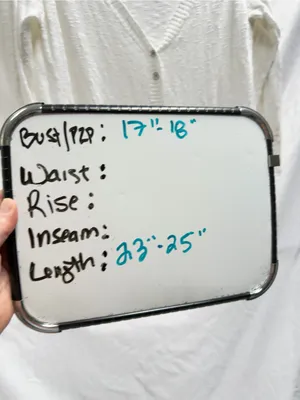 Bust/P2P: 17"-18"
Waist:
Rise:
Inseam:
Length: 23"-25"